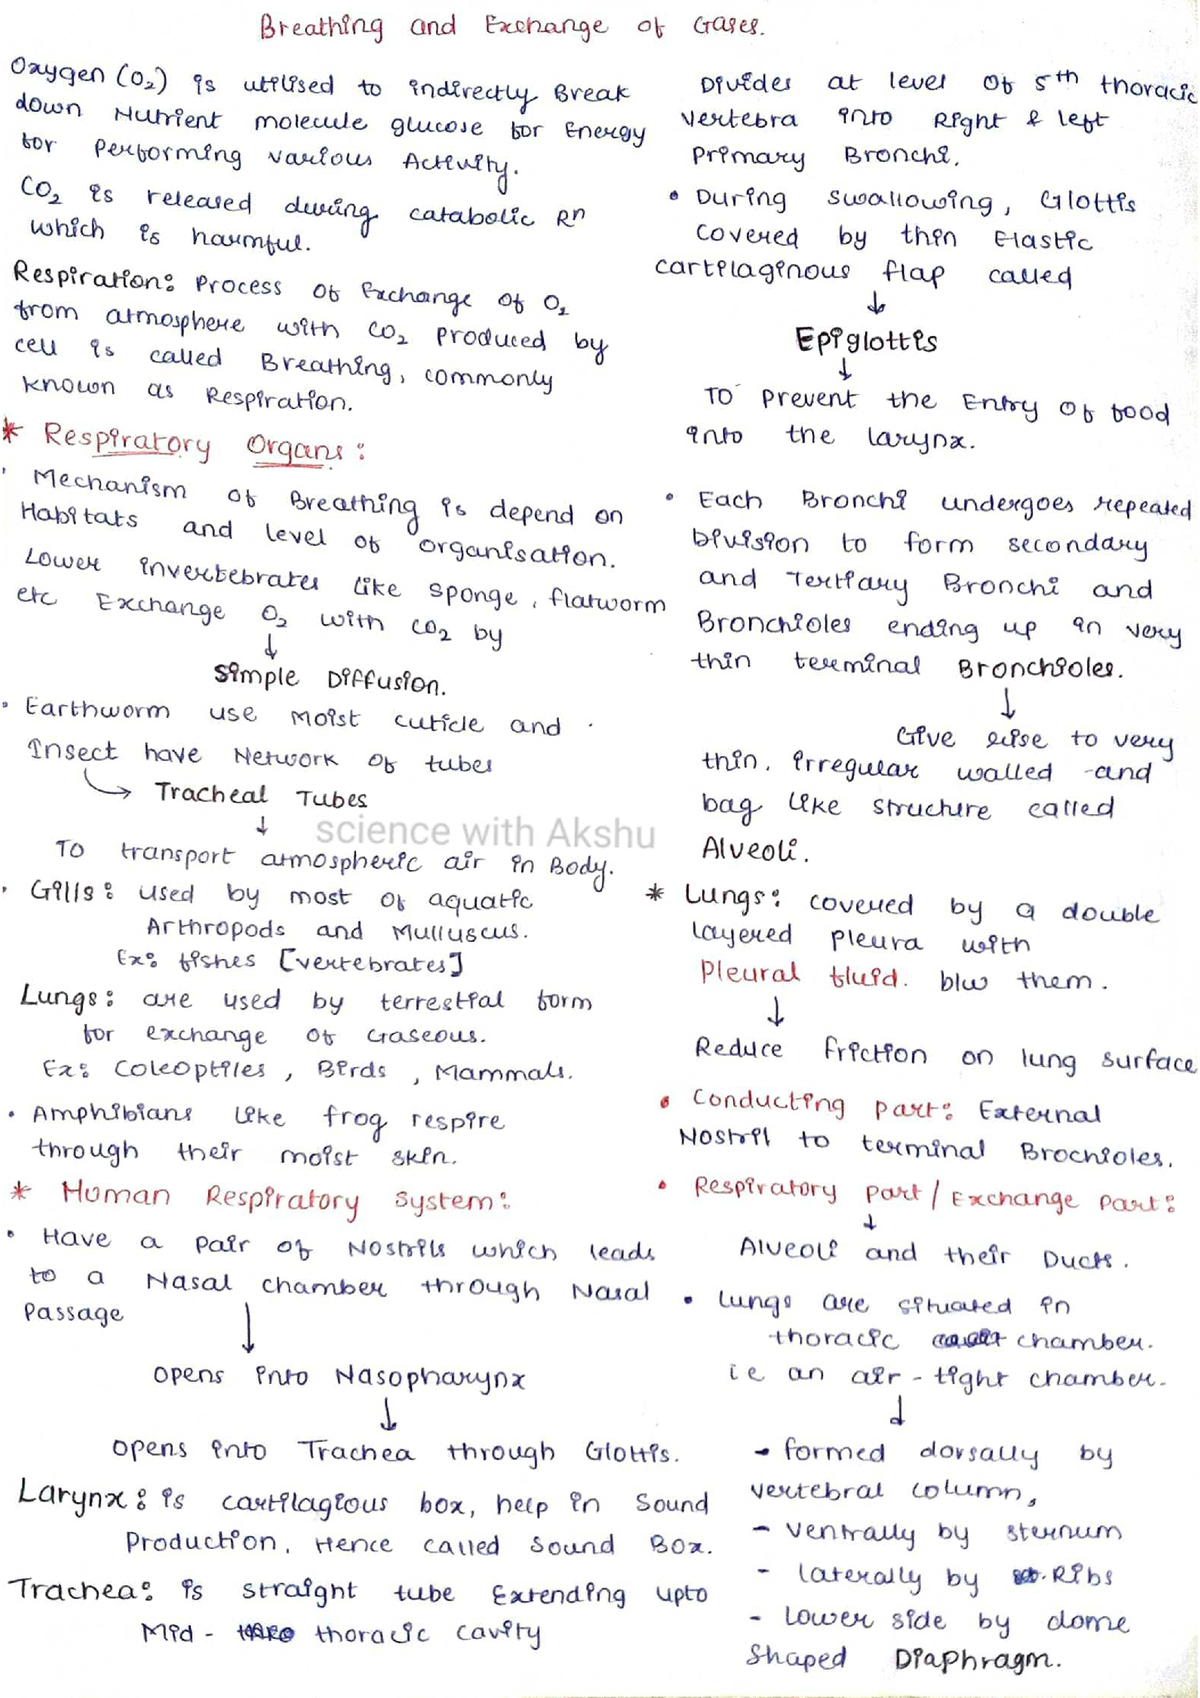 Breathing and Exchange of Gases.
Oxygen (O₂) is utilised to indirectly Break
down Nutrient molecule glucose for Energy
for Performing various Activity.
CO₂ is released during catabolic Rn
which is harmful.
Respiration: Process of Exchange of O₂
from atmosphere with CO₂ produced by
cell is called Breathing, commonly
known as Respiration.
* Respiratory Organs:
· Mechanism of Breathing is depend on
Habitats and level of organisation.
Lower invertebrates like sponge, flatworm
etc Exchange O₂ with CO₂ by
↓
Simple Diffusion.
· Earthworm use moist cuticle and
Insect have Network of tubes
→ Tracheal Tubes
↓
To transport atmospheric air in Body.
· Gills: used by most of aquatic
Arthropods and Mulluscus.
Ex: fishes [vertebrates]
Lungs: are used by terrestial form
for exchange of Gaseous.
Ex: Coleoptiles, Birds, Mammals.
• Amphibians like frog respire
through their moist skin.
* Human Respiratory System:
• Have a pair of Nostrils which leads
to a Nasal chamber through Nasal
Passage
↓
opens into Nasopharynx
↓
opens into Trachea through Glottis.
Larynx: is cartilagious box, help in Sound
Production, Hence called Sound Box.
Trachea: is straight tube Extending upto
Mid - thoracic cavity
Divides at level of 5th thoracic
vertebra into Right & left
Primary Bronchi.
• During swallowing, Glottis
covered by thin Elastic
cartilaginous flap called
↓
Epiglottis
↓
To prevent the Entry of food
into the larynx.
• Each Bronchi undergoes repeated
Division to form secondary
and Tertiary Bronchi and
Bronchioles ending up in very
thin terminal Bronchioles.
↓
Give rise to very
thin, irregular walled and
bag like structure called
Alveoli.
* Lungs: covered by a double
layered pleura with
Pleural fluid. blw them.
↓
Reduce friction on lung surface
• Conducting part: External
Nostril to terminal Brochioles.
• Respiratory part / Exchange part:
↓
Alveoli and their Ducts.
• Lungs are situated in
thoracic chamber.
i.e an air-tight chamber.
↓
- formed dorsally by
vertebral column,
- ventrally by sternum
- laterally by Ribs
- lower side by dome
shaped Diaphragm.
science with Akshu